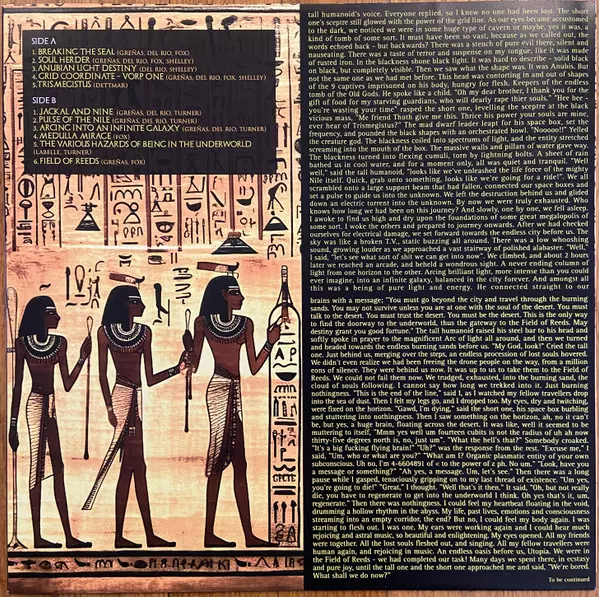 SIDE A
1. BREAKING THE SEAL (GREÑAS, DEL RIO, FOX)
2. SOUL HERDER (GREÑAS, DEL RIO, FOX, SHELLEY)
3. ANUBIAN LIGHT DESTINY (DEL RIO, SHELLEY)
4. GRID COORDINATE - VORP ONE (GREÑAS, DEL RIO, FOX, SHELLEY)
5. TRISMEGISTUS (DETTMAR)
SIDE B
1. JACKAL AND NINE (GREÑAS, DEL RIO, TURNER)
2. PULSE OF THE NILE (GREÑAS, DEL RIO, TURNER)
3. ARCING INTO AN INFINITE GALAXY (GREÑAS, DEL RIO, TURNER)
4. MEDULLA MIRAGE (FOX)
5. THE VARIOUS HAZARDS OF BEING IN THE UNDERWORLD
(LABELLE, TURNER)
6. FIELD OF REEDS (GREÑAS, FOX)
tall humanoid's voice. Everyone replied, so I knew no one had been lost. The short
one's sceptre still glowed with the power of the grid line. As our eyes became accustomed
to the dark, we noticed we were in some huge type of cavern or maybe, yes it was, a
kind of tomb of some sort. It must have been so vast, because as we called out, the
words echoed back - but backwards! There was a stench of pure evil there, silent and
nauseating. There was a taste of terror and suspense on my tongue, like it was made
of rusted iron. In the blackness shone black light. It was hard to describe - solid black
on black, but completely visible. Then we saw what the shape was. It was Anubis. But
not the same one as we had met before. This head was contorting in and out of shapes
of the 9 captives imprisoned on his body, hungry for flesh. Keepers of the endless
tomb of the Old Gods. He spoke like a child. "Oh my dear brother, I thank you for the
gift of food for my starving guardians, who will dearly rape thier souls." "Hee her -
you're wasting your time" rasped the short one, levelling the sceptre at the black
vicious mass, "Me friend Thoth give me this. Thrice his power your souls are mine,
ever hear of Trismegistus?" The mad dwarf leader leapt for his space box, set the
frequency, and pounded the black shapes with an orchestrated howl. "Nooooo!!" Yelled
the creature god. The blackness coiled into spectrums of light, and the entity stretched
screaming into the mouth of the box. The massive walls and pillars of water gave way.
The blackness turned into flexing cumuli, torn by lightning bolts. A sheet of rain
bathed us in cool water, and for a moment only, all was quiet and tranquil. "Well
well," said the tall humanoid, "looks like we've unleashed the life force of the mighty
Nile itself. Quick, grab onto something, looks like we're going for a ride!". We all
scrambled onto a large support beam that had fallen, connected our space boxes and
set a pulse to guide us into the unknown. We left the destruction behind us and glided
down an electric torrent into the unknown. By now we were truly exhausted. Who
knows how long we had been on this journey? And slowly, one by one, we fell asleep.
I awoke to find us high and dry upon the foundations of some great megalopolis of
some sort. I woke the others and prepared to journey onwards. After we had checked
ourselves for electrical damage, we set forward towards the endless city before us. The
sky was like a broken T.V., static buzzing all around. There was a low whooshing
sound, growing louder as we approached a vast stairway of polished alabaster. "Well,"
I said, "let's see what sort of shit we can get into now". We climbed, and about 2 hours
later we reached an arcade, and beheld a wondrous sight. A never ending column of
light from one horizon to the other. Arcing brilliant light, more intense than you could
ever imagine, into an infinite galaxy, balanced in the city forever. And amongst all
this was a being of pure light and energy. He connected straight to our
brains with a message; "You must go beyond the city and travel through the burning
sands. You may not survive unless you are at one with the soul of the desert. You must
talk to the desert. You must trust the desert. You must be the desert. This is the only way
to find the doorway to the underworld, thus the gateway to the Field of Reeds. May
destiny grant you good fortune." The tall humanoid raised his steel bar to his head and
softly spoke in prayer to the magnificent Arc of light all around, and then we turned
and headed towards the endless burning sands before us. "My God, look!" Cried the tall
one. Just behind us, merging over the steps, an endless procession of lost souls hovered.
We didn't even realize we had been freeing the drone people on the way, from a million
eons of silence. They were behind us now. It was up to us to take them to the Field of
Reeds. We could not fail them now. We trudged, exhausted, into the burning sand, the
cloud of souls following. I cannot say how long we trekked into it. Just burning
nothingness. "This is the end of the line," said I, as I watched my fellow travellers drop
into the sea of dust. Then I felt my legs go, and I dropped too. My eyes, dry and twitching,
were fixed on the horizon. "Gawd, I'm dying," said the short one, his space box burbling
and stuttering into nothingness. Then I saw something on the horizon, ah, no it can't
be, but yes, a huge brain, floating across the desert. It was like, well it seemed to be
muttering to itself, "Mmm yes well um fourteen cubits is not the radius of uh ah now
thirty-five degrees north is, no, just um". "What the hell's that?" Somebody croaked.
"It's a big fucking flying brain!" "Uh?" was the response from the rest. "Excuse me," I
said, "Um, who or what are you?" "What am I? Organic plasmatic entity of your own
subconscious. Uh no, I'm 4-6604891 of < to the power of z ph. No um." "Look, have you
a message or something?" "Ah yes, a message. Um, let's see." Then there was a long
pause while I gasped, tenaciously gripping on to my last thread of existence. "Um yes,
you're going to die!" "Great," I thought. "Well that's it then." It said, "Oh, but not really
die, you have to regenerate to get into the underworld I think. Oh yes that's it, um,
regenerate." Then there was nothingness. I could feel my heartbeat floating in the void,
drumming a hollow rhythm in the abyss. My life, past lives, emotions and consciousness
streaming into an empty corridor, the end? But no, I could feel my body again. I was
starting to flesh out. I was one. My ears were working again and I could hear much
rejoicing and astral music, so beautiful and enlightening. My eyes opened. All my friends
were together. All the lost souls fleshed out, and singing. All my fellow travellers were
human again, and rejoicing in music. An endless oasis before us, Utopia. We were in
the Field of Reeds - we had completed our task! Many days we spent there, in ecstasy
and pure joy, until the tall one and the short one approached me and said, "We're bored.
What shall we do now?"
To be continued